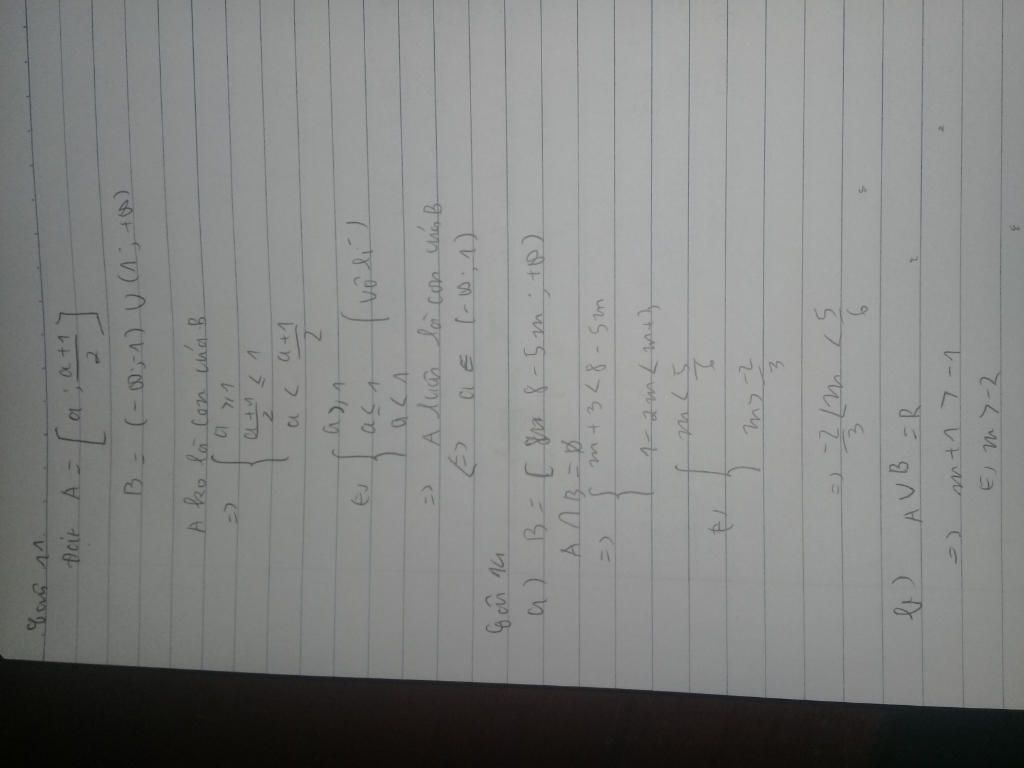 Câu 11
Đặt A = [a; a+1/2]
B = (-∞; -1) ∪ (1; +∞)
A ko là con của B
=> { a ≥ 1
a+1/2 ≤ 1
a < a+1/2
<=> { a ≥ 1
a ≤ 1 (vô lí)
a < 1
=> A luôn là con của B
<=> a ∈ (-∞; 1)
Câu 14
a) B = [ 8 - 5m; +∞)
A ∩ B = ∅
=> { m + 3 < 8 - 5m
1 - 2m < m + 3
<=> { m < 5/6
m > -2/3
=> -2/3 < m < 5/6
b) A ∪ B = R
=> m + 1 > -1
<=> m > -2